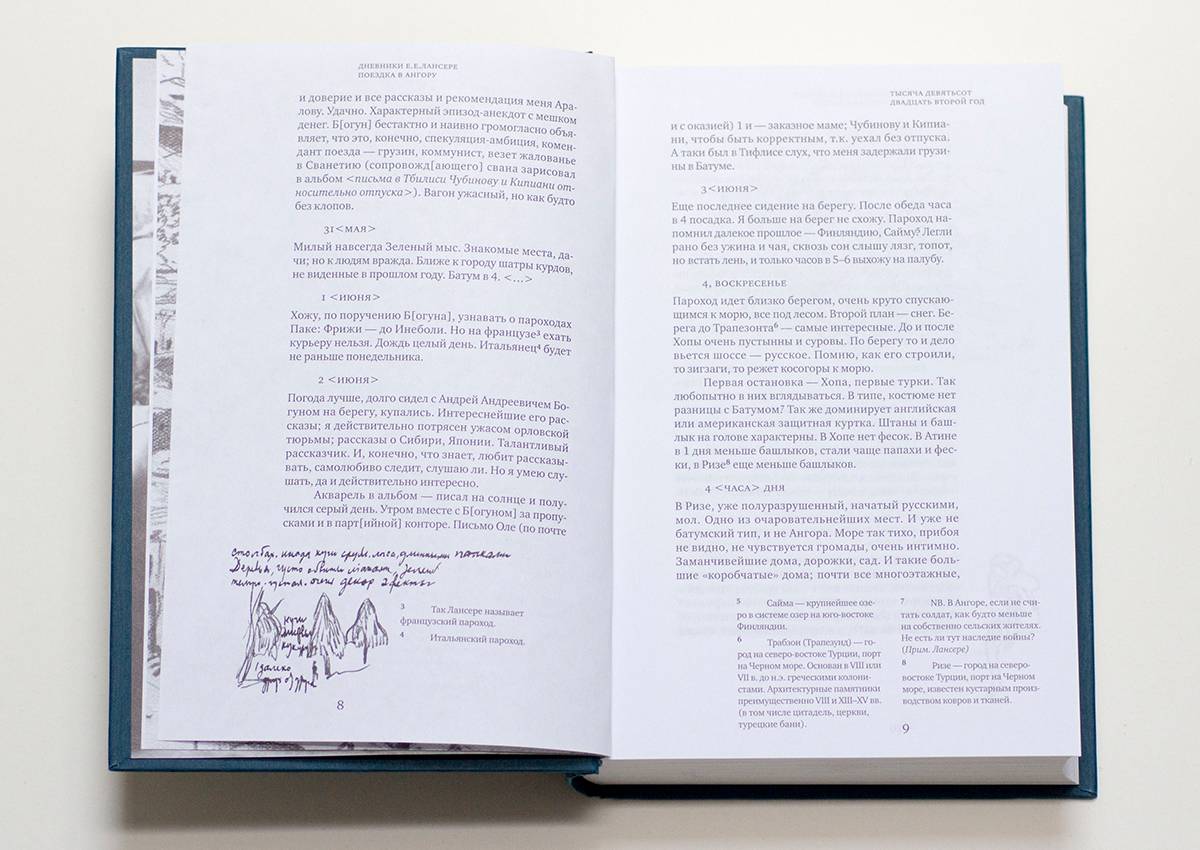 ДНЕВНИКИ Е.Е.ЛАНСЕРЕ
ПОЕЗДКА В АНГОРУ
и доверие и все рассказы и рекомендация меня Ара-
лову. Удачно. Характерный эпизод-анекдот с мешком
денег. Б[огун] бестактно и наивно громогласно объя-
вляет, что это, конечно, спекуляция-амбиция, комен-
дант поезда — грузин, коммунист, везет жалованье
в Сванетию (сопровожд[ающего] свана зарисовал
в альбом <письма в Тбилиси Чубинову и Кипиани от-
носительно отпуска>). Вагон ужасный, но как будто
без клопов.
31<МАЯ>
Милый навсегда Зеленый мыс. Знакомые места, да-
чи; но к людям вражда. Ближе к городу шатры курдов,
не виденные в прошлом году. Батум в 4. <...>
1 <ИЮНЯ>
Хожу, по поручению Б[огуна], узнавать о пароходах
Паке: Фрижи — до Инеболи. Но на французе³ ехать
курьеру нельзя. Дождь целый день. Итальянец⁴ будет
не раньше понедельника.
2 <ИЮНЯ>
Погода лучше, долго сидел с Андрей Андреевичем Бо-
гуном на берегу, купались. Интереснейшие его рас-
сказы; я действительно потрясен ужасом орловской
тюрьмы; рассказы о Сибири, Японии. Талантливый
рассказчик. И, конечно, что знает, любит рассказы-
вать, самолюбиво следит, слушаю ли. Но я умею слу-
шать, да и действительно интересно.
Акварель в альбом — писал на солнце и полу-
чился серый день. Утром вместе с Б[огуном] за пропу-
сками и в парт[ийной] конторе. Письмо Оле (по почте
кучи
далеко
3 Так Лансере называет
французский пароход.
4 Итальянский пароход.
8
ТЫСЯЧА ДЕВЯТЬСОТ
ДВАДЦАТЬ ВТОРОЙ ГОД
и с оказией) 1 и — заказное маме; Чубинову и Кипиа-
ни, чтобы быть корректным, т.к. уехал без отпуска.
А таки был в Тифлисе слух, что меня задержали грузи-
ны в Батуме.
3<ИЮНЯ>
Еще последнее сидение на берегу. После обеда часа
в 4 посадка. Я больше на берег не схожу. Пароход на-
помнил далекое прошлое — Финляндию, Сайму⁵. Легли
рано без ужина и чая, сквозь сон слышу лязг, топот,
но встать лень, и только часов в 5–6 выхожу на палубу.
4, ВОСКРЕСЕНЬЕ
Пароход идет близко берегом, очень круто спускаю-
щимся к морю, все под лесом. Второй план — снег. Бе-
рега до Трапезонта⁶ — самые интересные. До и после
Хопы очень пустынны и суровы. По берегу то и дело
вьется шоссе — русское. Помню, как его строили,
то зигзаги, то режет косогоры к морю.
Первая остановка — Хопа, первые турки. Так
любопытно в них вглядываться. В типе, костюме нет
разницы с Батумом⁷. Так же доминирует английская
или американская защитная куртка. Штаны и баш-
лык на голове характерны. В Хопе нет фесок. В Атине
в 1 дня меньше башлыков, стали чаще папахи и фес-
ки, в Ризе⁸ еще меньше башлыков.
4 <ЧАСА> ДНЯ
В Ризе, уже полуразрушенный, начатый русскими,
мол. Одно из очаровательнейших мест. И уже не
батумский тип, и не Ангора. Море так тихо, прибоя
не видно, не чувствуется громады, очень интимно.
Заманчивейшие дома, дорожки, сад. И такие боль-
шие «коробчатые» дома; почти все многоэтажные,
5 Сайма — крупнейшее озе-
ро в системе озер на юго-востоке
Финляндии.
6 Трабзон (Трапезунд) — го-
род на северо-востоке Турции, порт
на Черном море. Основан в VIII или
VII в. до н.э. греческими колони-
стами. Архитектурные памятники
преимущественно VIII и XIII–XV вв.
(в том числе цитадель, церкви,
турецкие бани).
7 NB. В Ангоре, если не счи-
тать солдат, как будто меньше
на собственно сельских жителях.
Не есть ли тут наследие войны?
(Прим. Лансере)
8 Ризе — город на северо-
востоке Турции, порт на Черном
море, известен кустарным произ-
водством ковров и тканей.
9